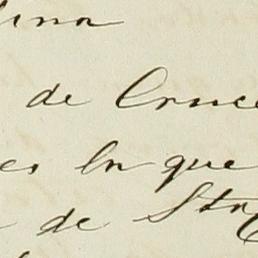 lina
de Cruce
es la que
de Sta